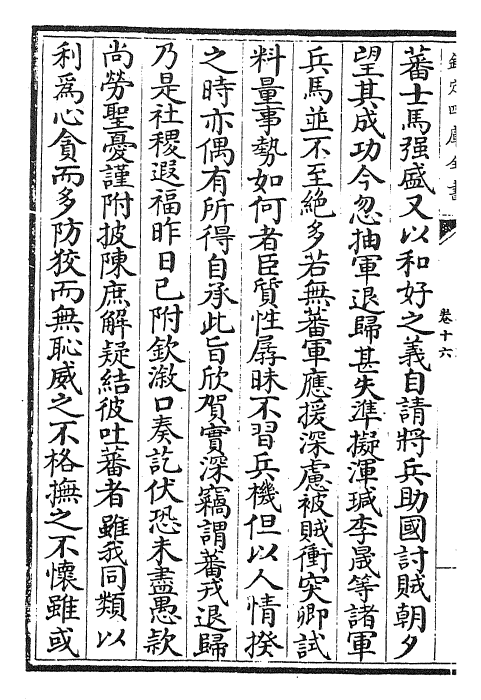 欽定四庫全書
卷十六
蕃士馬强盛又以和好之義自請將兵助國討賊朝夕
望其成功今忽抽軍退歸甚失準擬渾瑊李晟等諸軍
兵馬並不至絶多若無蕃軍應援深慮被賊衝突卿試
料量事勢如何者臣質性孱昧不習兵機但以人情揆
之時亦偶有所得自承此旨欣賀實深竊謂蕃戎退歸
乃是社稷遐福昨日已附欽溆口奏訖伏恐未盡愚款
尚勞聖憂謹附披陳庶解疑結彼吐蕃者雖我同類以
利為心貪而多防狡而無恥威之不格撫之不懷雖或